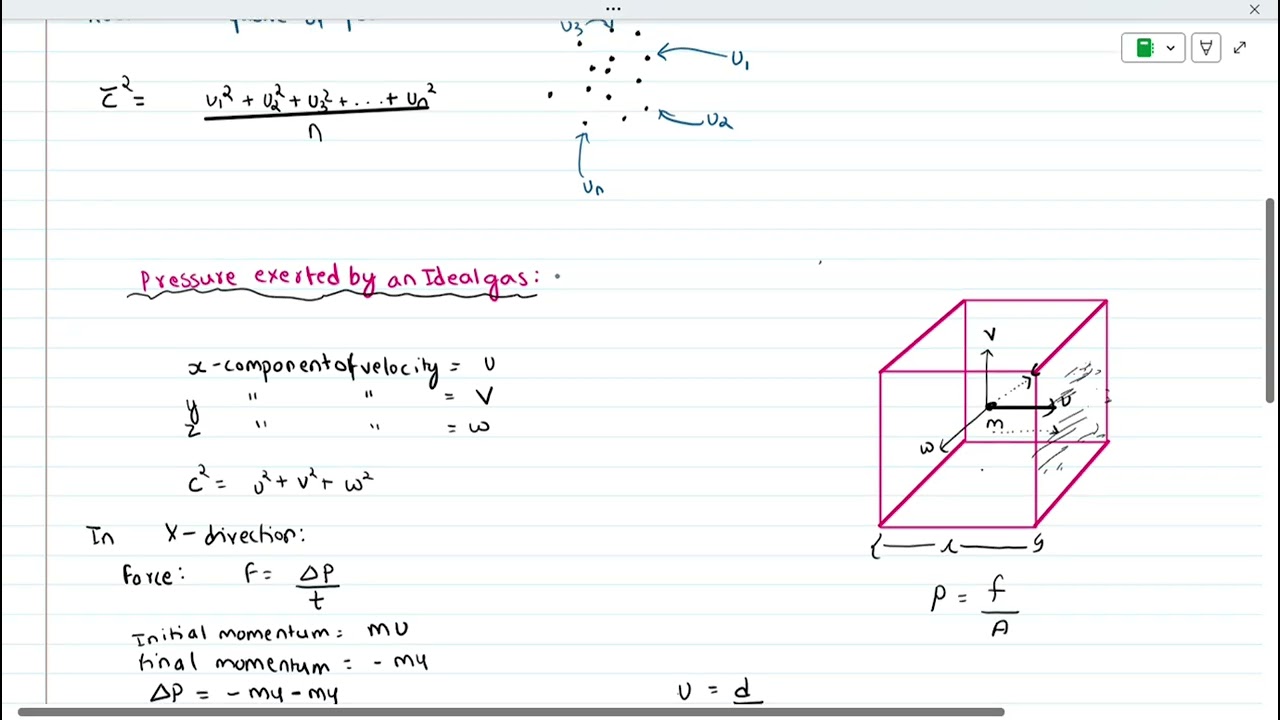 U3
U1
c̄² = U1² + U2² + U3² + ... + Un² / n
U2
Un
Pressure exerted by an Ideal gas:
x-component of velocity = U
y " " = V
z " " = w
c² = U² + V² + w²
In X-direction:
Force: F = ΔP / t
Initial momentum = mu
final momentum = -mu
ΔP = -mu - mu
V
U
m
w
l
P = f / A
U = d